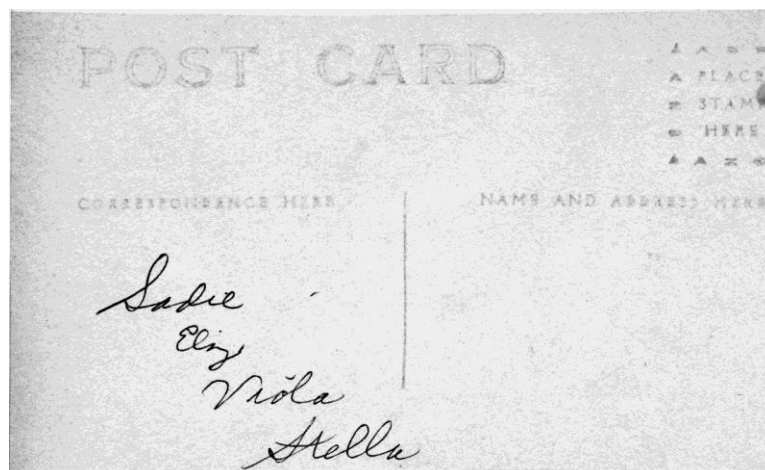 POST CARD
PLACE
STAMP
HERE
CORRESPONDANCE HERE
NAME AND ADDRESS HERE
Sadie
Eliz
Viola
Stella